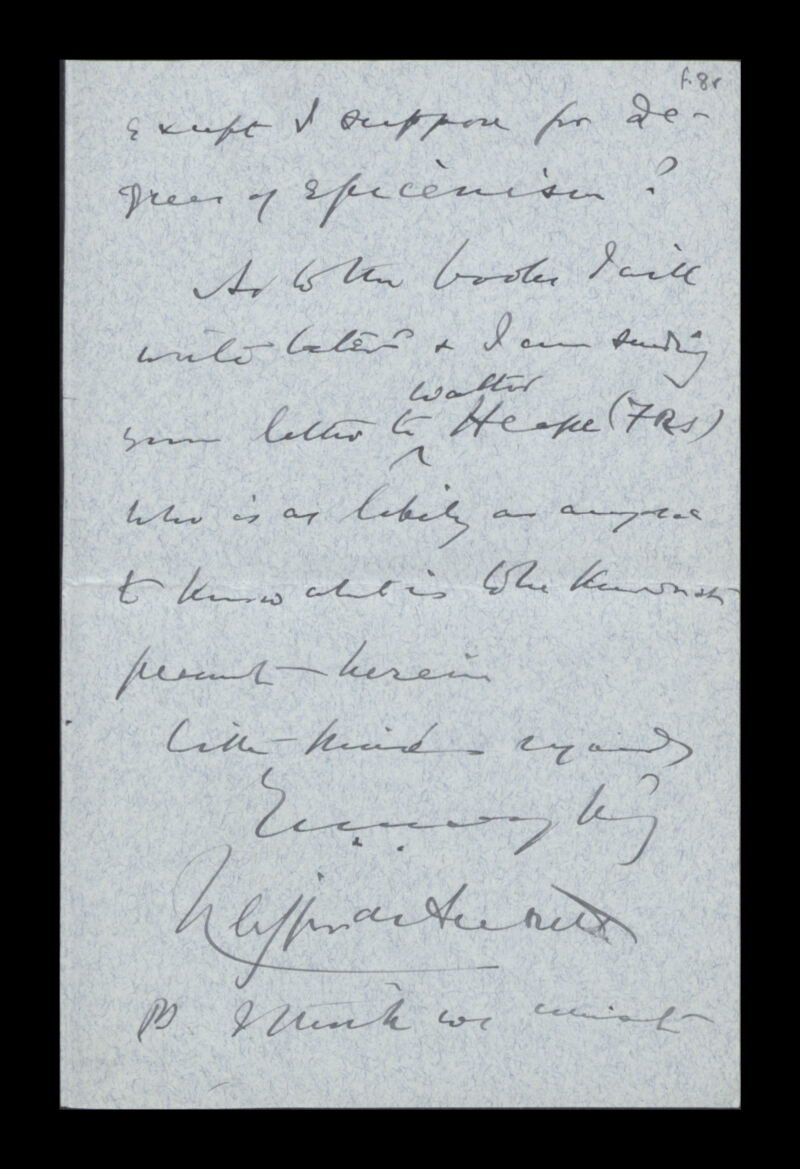 f.8r
except I suppose for de-
grees of epicenism?
As to the books I will
write later & I am sending
your letter to Walter Heape (FRS)
who is as likely as anyone
to know what is to be known at
present herein
With kindest regards
Clifford Allbutt
PS I think we must